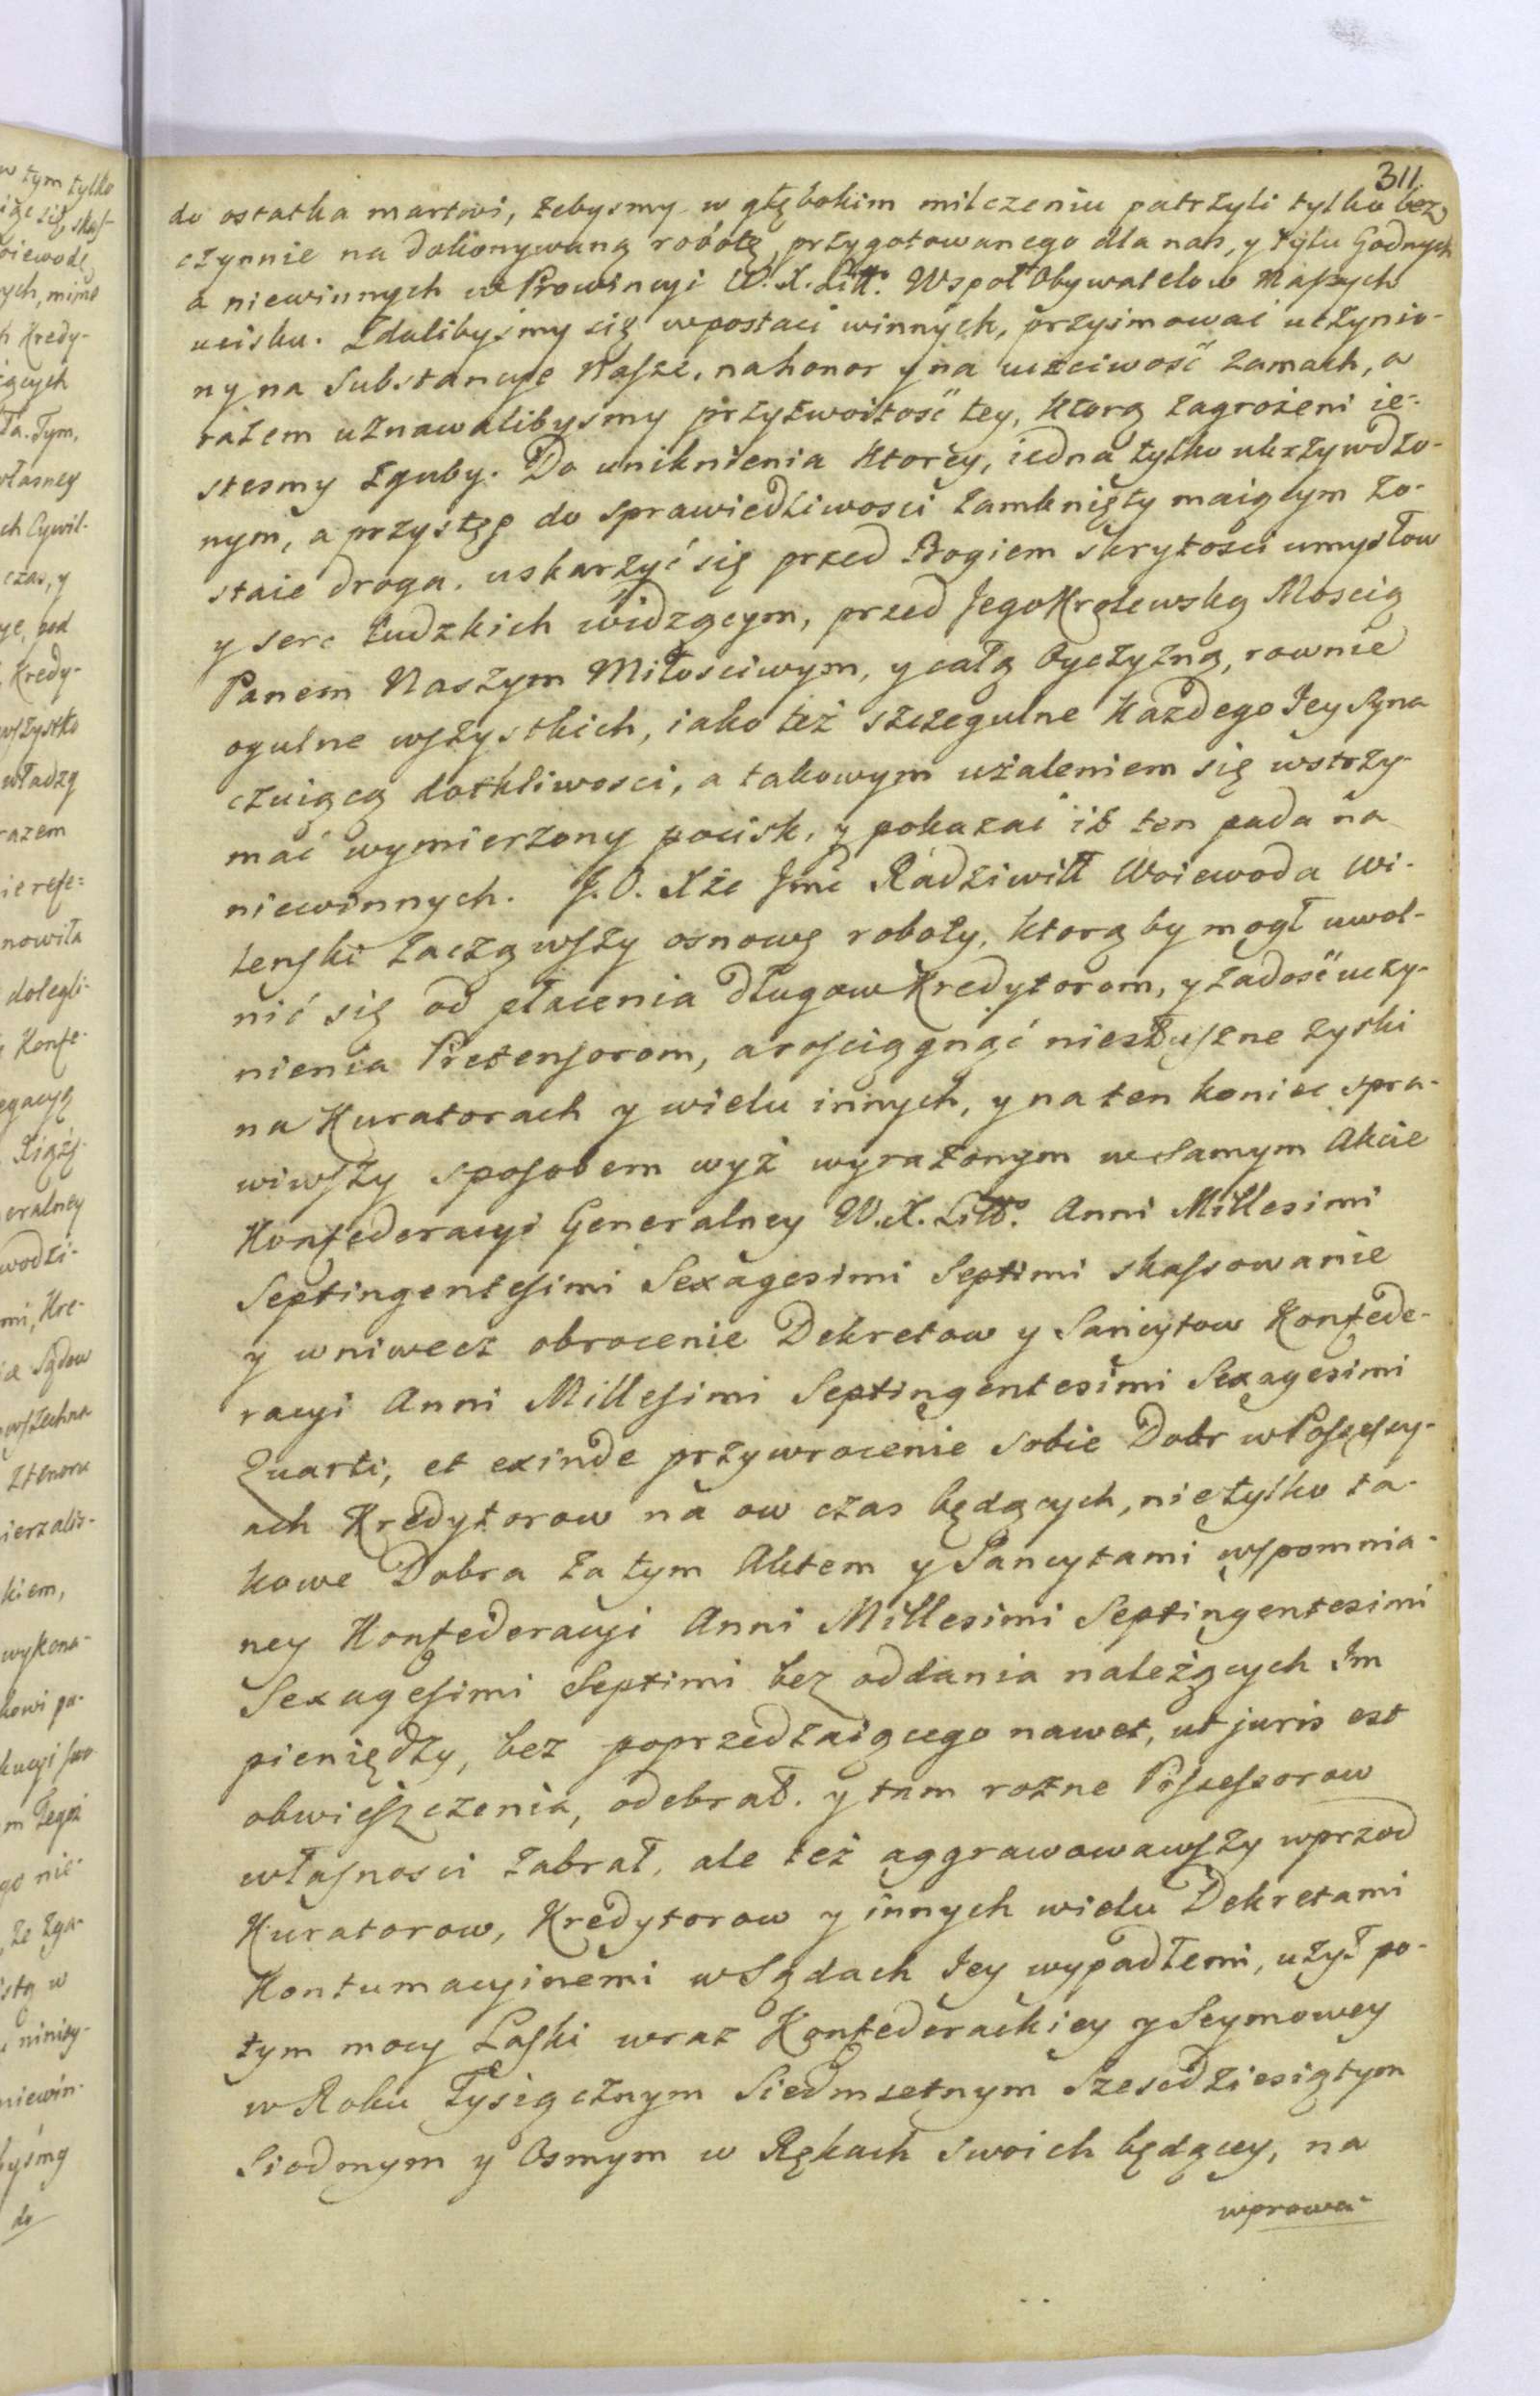 311
do ostatka martwi, żebysmy w głębokim milczeniu patrzyli tylko bez,
czynnie na dokonywaną robotę, przygotowanego dla nas, y tylu Godnych
a niewinnych w Prowincyi W. X. Litt:º Wspoł Obywatelow Naszych
ucisku. Zdalibyśmy się w postaci winnych, przyimować uczynio-
ny na Substancye Nasze, na honor y na uczciwość zamach, a
razem uznawalibysmy przyzwoitość tey, ktorą zagrożeni ie-
stesmy zguby. Do uniknienia ktorey, iedna tylko ukrzywdzo-
nym, a przystęp do sprawiedliwosci zamknięty maiącym zo-
staie droga. uskarzyć się przed Bogiem skrytosci umysłow
y serc ludzkich widzącym, przed Jego Krolewską Moscią
Panem Naszym Miłosciwym, y całą Oyczyzną, rownie
ogulne wszystkich, iako też szczegulne Każdego Jey syna
czuiącą dotkliwosci, a takowym użaleniem się wstrzy-
mać wymierzony pocisk, y pokazać iż ten pada na
niewinnych. J. O. Xże Jmć Radziwiłł Woiewoda Wi-
lenski zacząwszy osnowę roboty, ktorą by mogł uwol-
nić się od płacenia długow Kredytorom, y zadość uczy-
nienia Pretensorom, a rosciągnąć niesłuszne zyski
na Kuratorach y wielu innych, y na ten koniec spra-
wiwszy sposobem wyż wyrażonym w samym Akcie
Konfederacyi Generalney W. X. Litt:º Anni Millesimi
Septingentesimi Sexagesimi Septimi skassowanie
y w niwecz obrocenie Dekretow y Sancytow Konfede-
racyi Anni Millesimi Septingentesimi Sexagesimi
Quarti, et exinde przywrocenie sobie Dobr w Possessy-
ach Kredytorow na ow czas będących, nie tylko ta-
kowe Dobra za tym Aktem y Sancytami wspomnia-
ney Konfederacyi Anni Millesimi Septingentesimi
Sexagesimi Septimi bez oddania należących Im
pieniędzy, bez poprzedzaiącego nawet, ut juris est
obwieszczenia, odebrał. y tam rożne Possessorow
własnosci zabrał, ale też aggrawowawszy wprzod
Kuratorow, Kredytorow y innych wielu Dekretami
Kontumacyinemi w Sądach Jey wypadłemi, użył po-
tym mocy Laski wraz Konfederackiey y Seymowey
w Roku Tysiącznym Siedmsetnym Szescdziesiątym
Siodmym y Osmym w Rękach swoich będącey, na
wprowa-